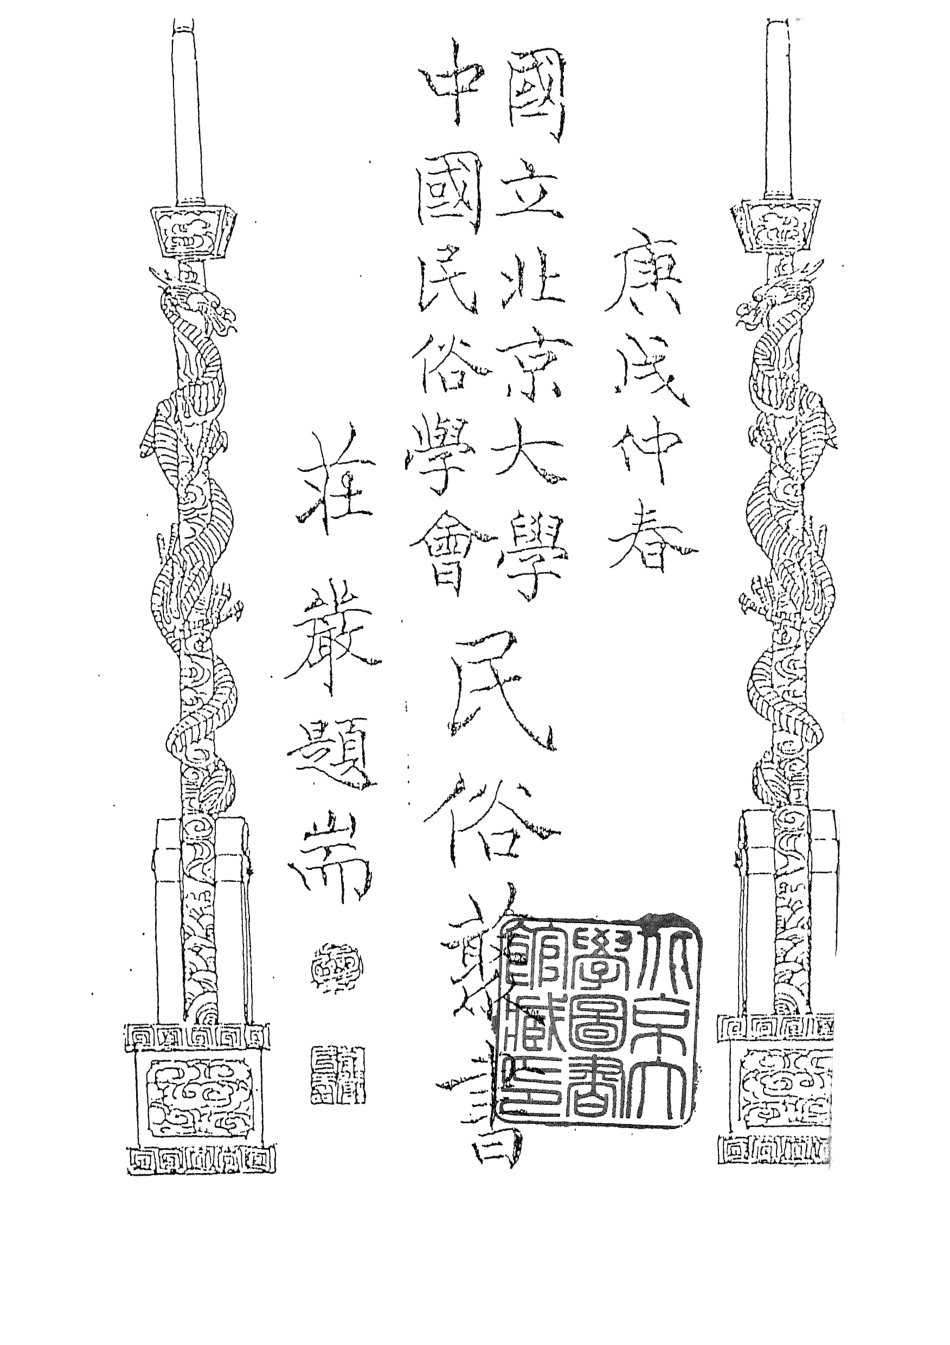 庚戌仲春
國立北京大學
中國民俗學會
民俗叢書
莊嚴題耑
北京大
學圖書
館藏印